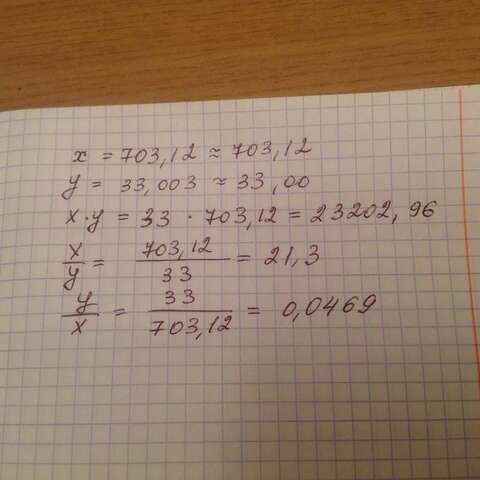 x = 703,12 ≈ 703,12
y = 33,003 ≈ 33,00
x·y = 33 · 703,12 = 23202,96
x/y = 703,12/33 = 21,3
y/x = 33/703,12 = 0,0469